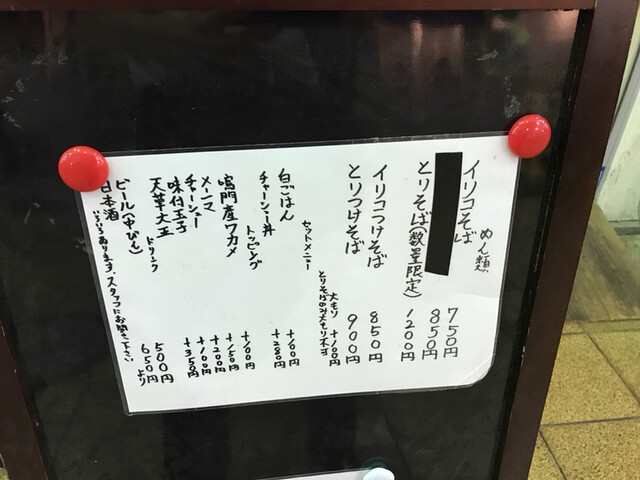 めん類
イリコそば 750円
850円
とりそば(数量限定) 1200円
イリコつけそば 850円
とりつけそば 900円
大もり +100円
とりそばのみ大もり不可
セットメニュー
白ごはん +100円
チャーシュー丼 +280円
トッピング
鳴門産ワカメ +100円
メンマ +150円
チャーシュー +200円
味付玉子 +100円
天草大王 +350円
ドリンク
ビール(中びん) 500円
日本酒 650円より
いろいろあります、スタッフにお聞き下さい